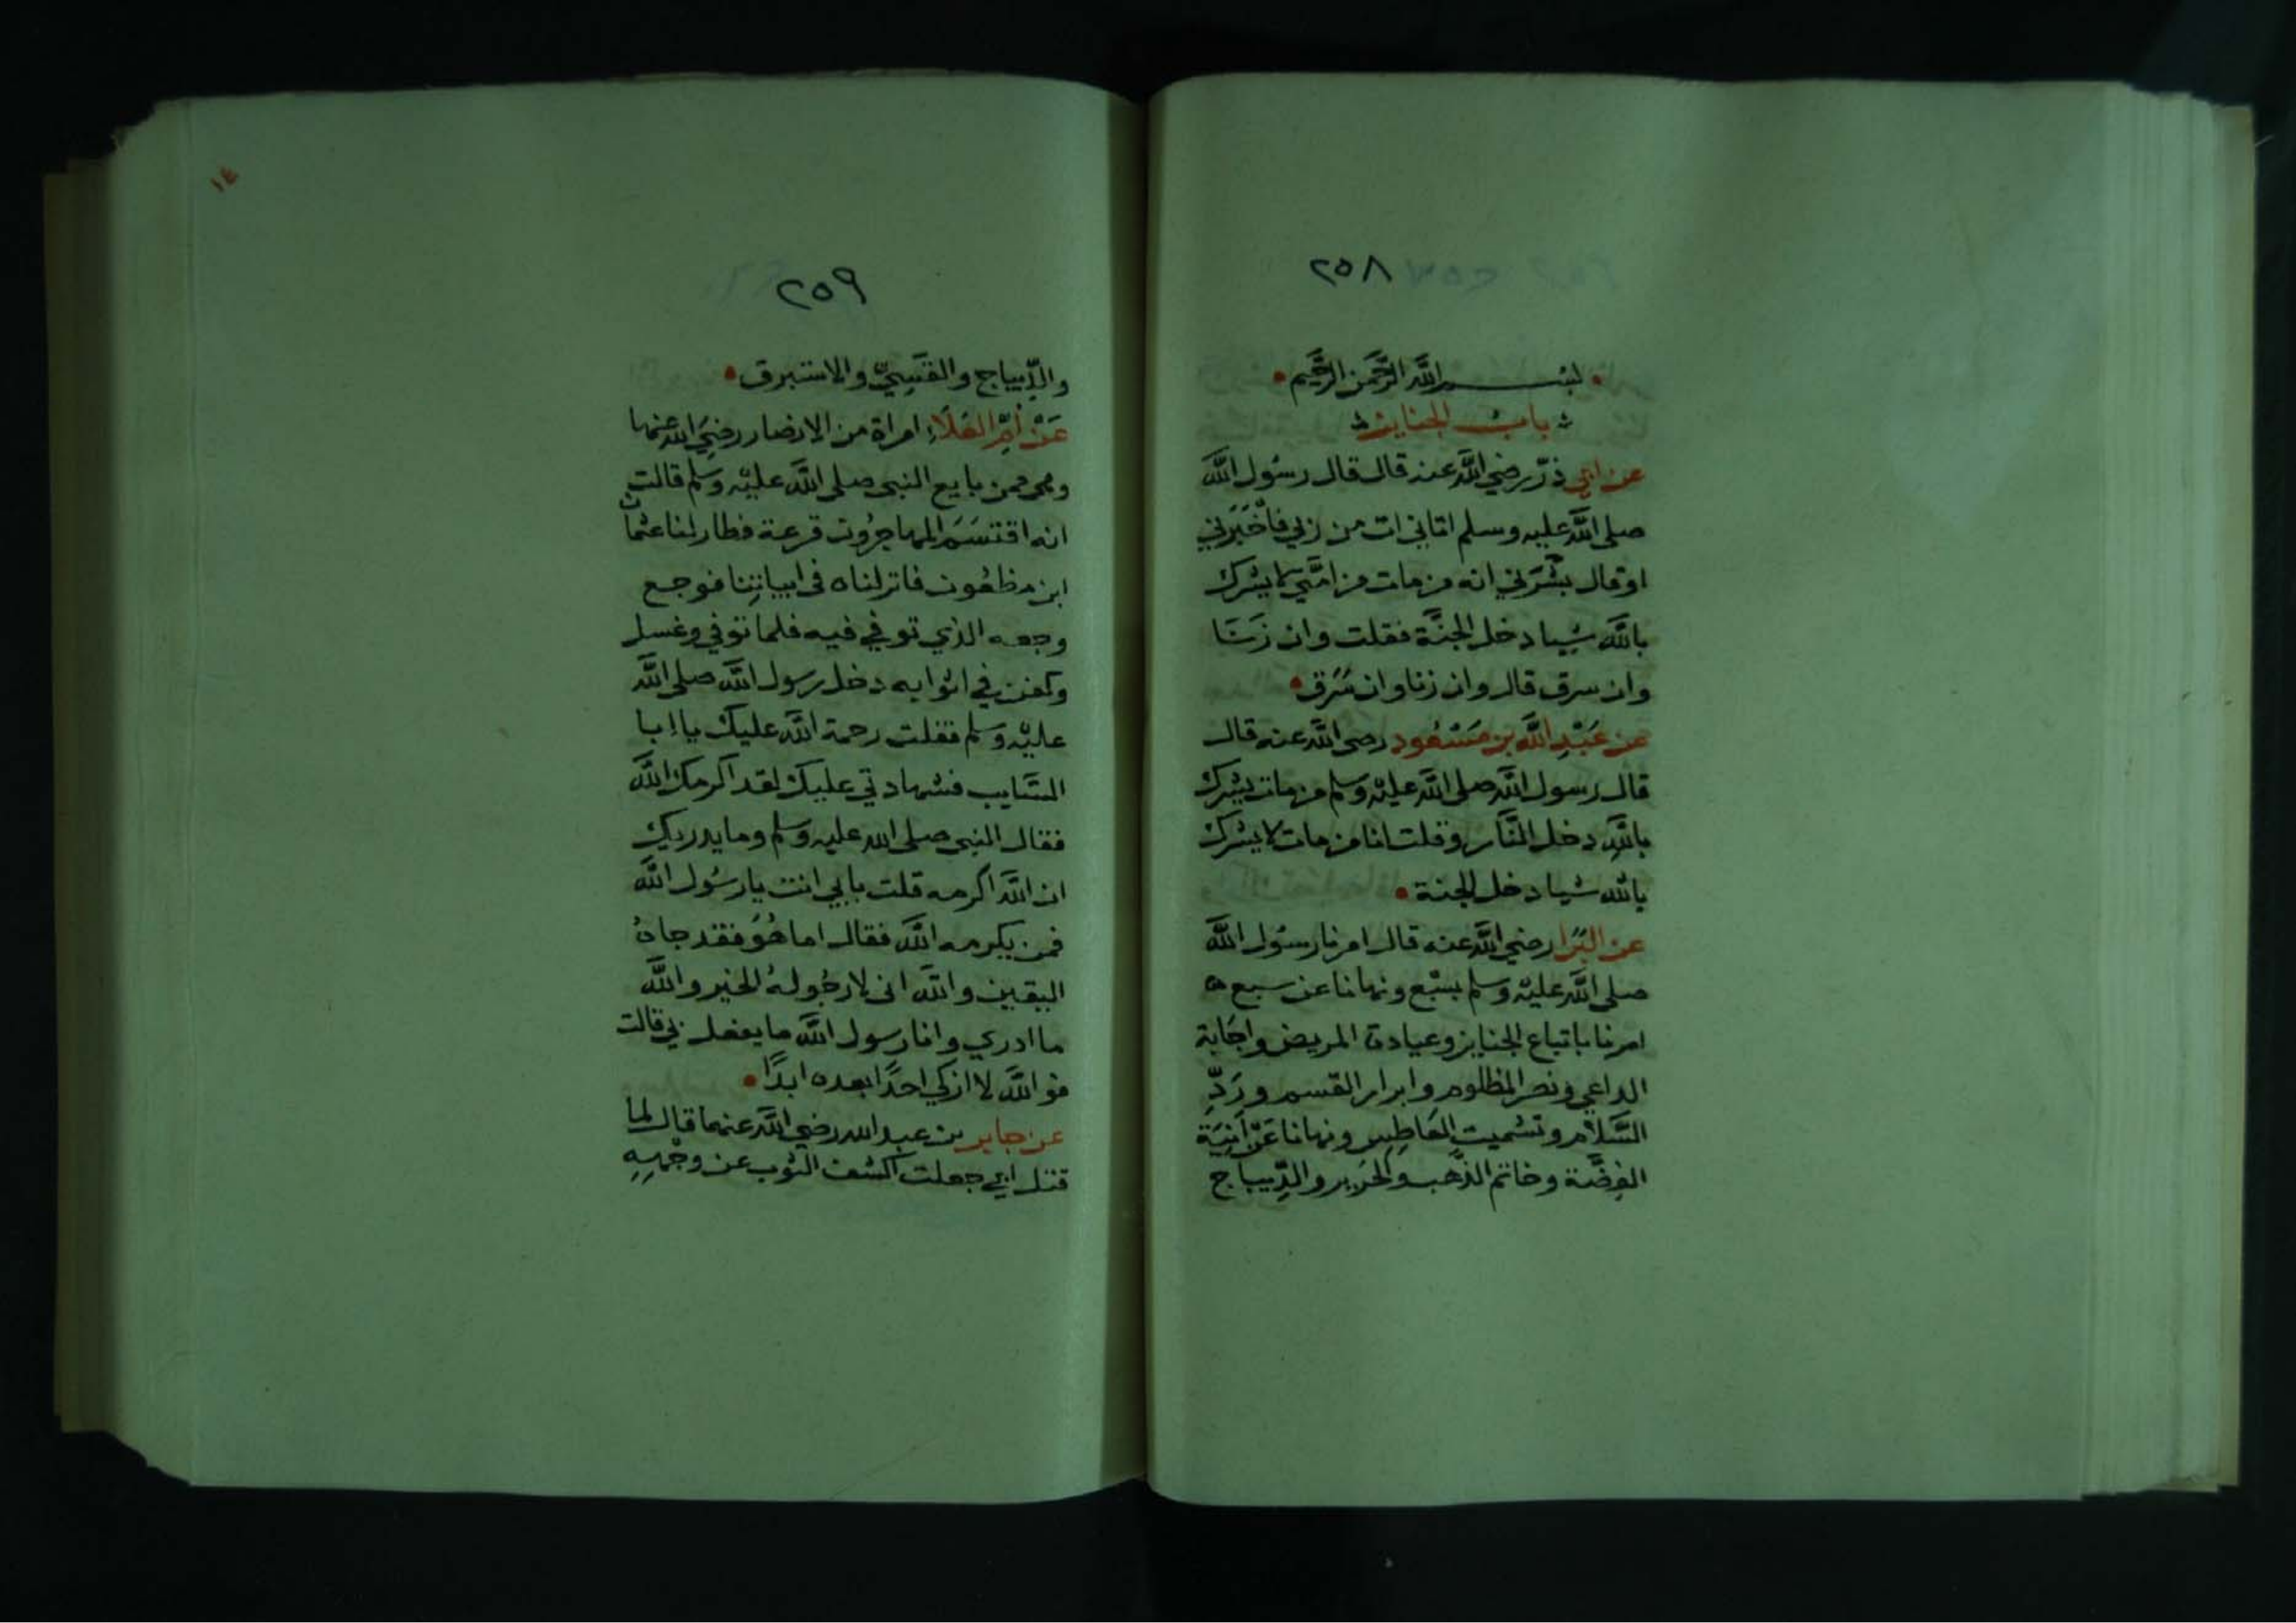 ٢٥٨
بسم الله الرَّحمن الرَّحيم
باب الجنايز
عن ابي ذرّ رضي الله عنه قال قال رسُول الله
صلى الله عليه وسلم اتاني ات من ربي فأخبَرني
او قال بشّرَني انه من مات من امّتي لا يشرك
بالله شيا دخل الجنَّة فقلت وان زنَا
وان سرق قال وان زنا وان سَرق
عن عَبْدِ الله بن مَسْعُود رضى الله عنه قال
قال رسول الله صلى الله عليْه وسلم من مات يشرك
بالله دخل النَّار وقلت انا من مات لا يشرك
بالله شيا دخل الجنة
عن البرَا رضي الله عنه قال امرنا رسُول الله
صلى الله عليْه وسلم بسَبْع ونهانا عن سبع ه
امرنا باتباع الجنايز وعيادة المريض واجَابة
الداعي ونصر المظلوم وابرار القسم ورَدِّ
السَّلام وتشميت العَاطِس ونهانا عَنْ آنيَة
الفِضَّة وخاتم الذَّهب والحَرير والدِّيباج
١٤
٢٥٩
والدِّيباج والقسِيّ والاستبرق
عَنْ أمّ العَلَاءِ امراة من الانصار رضيَ الله عنها
وهى ممن بايع النبى صلى الله عليْه وسلم قالت
انه اقتسَمَ المهاجرُون قرعة فطار لنا عثمان
ابن مظعُون فانزلناه فى ابياتِنا فوجع
وجعه الذي توفي فيه فلما توفي وغسل
وكفن في اثوابه دخل رسول الله صلى الله
عليْه وَسلم فقلت رحمة الله عليك يا ابا
السَّايب فشهادتي عليك لقد اكرمك الله
فقال النبى صلى الله عليه وسلم وما يدريك
ان الله اكرمه قلت بابي انت يا رسُول الله
فمن يكرمه الله فقال اما هُوَ فقد جاهُ
اليقين والله انى لارجُو لهُ الخير والله
ما ادري وانا رسول الله ما يفعل بي قالت
فو الله لا ازكي احدًا بعده ابدًا
عن جابر بن عبد الله رضي الله عنهما قال لما
قتل ابي جعلت اكشف الثوب عن وجْهِهِ